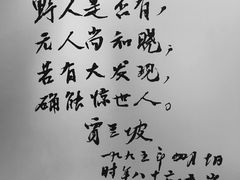 野人是否有，
无人尚和晓，
若有大发现，
确能惊世人。
贾兰坡
一九九三年四月十日
时年八十